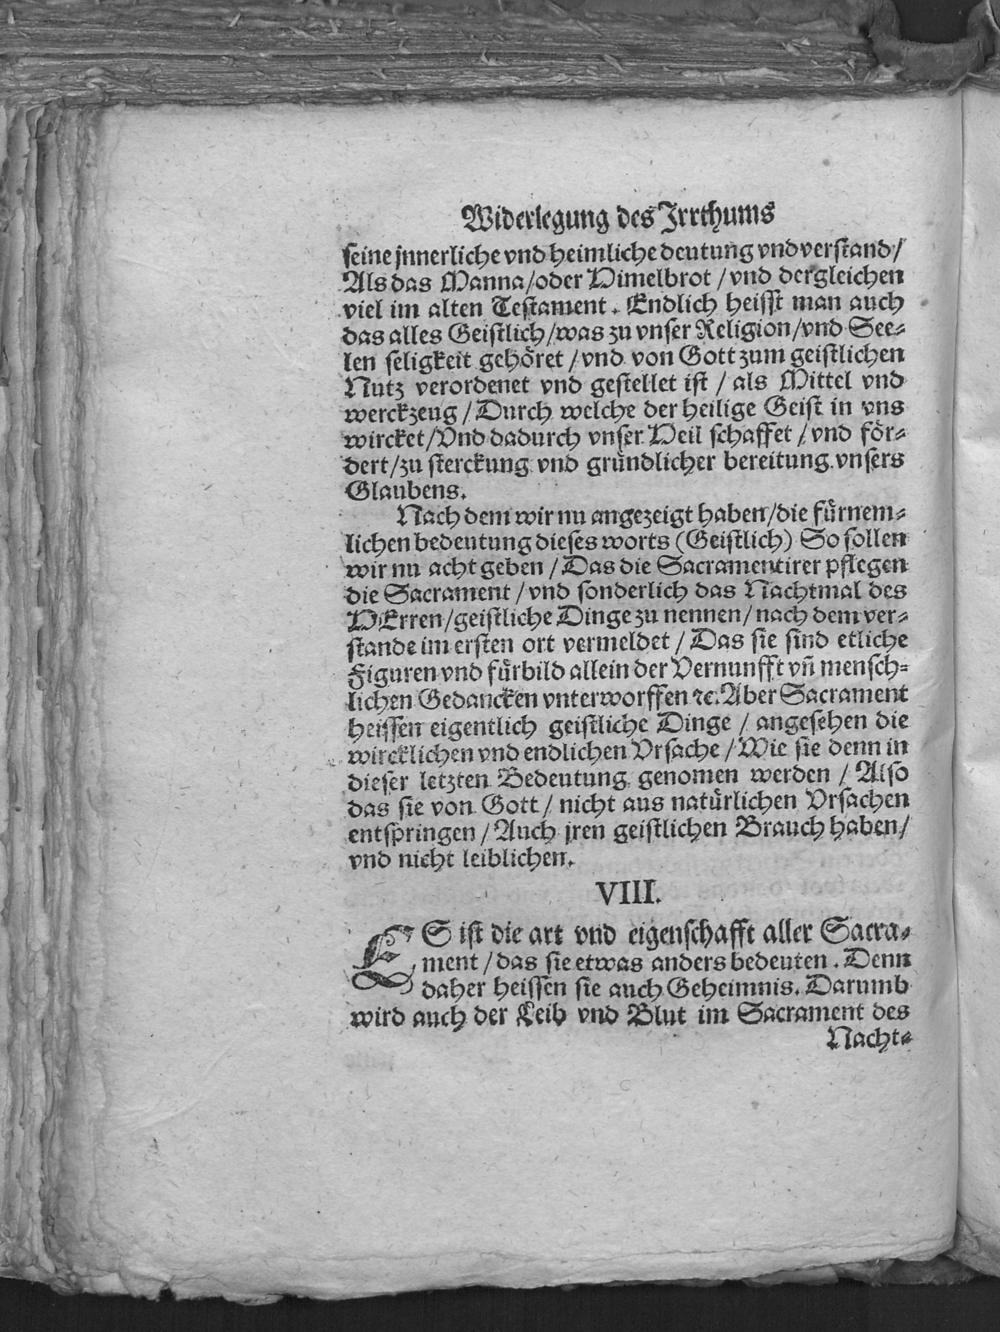 Widerlegung des Jrrthums
seine jnnerliche vnd heimliche deutung vnd verstand/
Als das Manna/oder Himelbrot/vnd dergleichen
viel im alten Testament. Endlich heisst man auch
das alles Geistlich/was zu vnser Religion/vnd See-
len seligkeit gehöret/vnd von Gott zum geistlichen
Nutz verordenet vnd gestellet ist/als Mittel vnd
werckzeug/Durch welche der heilige Geist in vns
wircket/Vnd dadurch vnser Heil schaffet/vnd för-
dert/zu sterckung vnd gründlicher bereitung vnsers
Glaubens.
Nach dem wir nu angezeigt haben/die fürnem-
lichen bedeutung dieses worts (Geistlich) So sollen
wir nu acht geben/Das die Sacramentirer pflegen
die Sacrament/vnd sonderlich das Nachtmal des
HErren/geistliche Dinge zu nennen/nach dem ver-
stande im ersten ort vermeldet/Das sie sind etliche
Figuren vnd fürbild allein der Vernunfft vñ mensch-
lichen Gedancken vnterworffen ꝛc. Aber Sacrament
heissen eigentlich geistliche Dinge/angesehen die
wircklichen vnd endlichen Vrsache/Wie sie denn in
dieser letzten Bedeutung genomen werden/Also
das sie von Gott/nicht aus natürlichen Vrsachen
entspringen/Auch jren geistlichen Brauch haben/
vnd nicht leiblichen.
VIII.
ES ist die art vnd eigenschafft aller Sacra-
ment/das sie etwas anders bedeuten. Denn
daher heissen sie auch Geheimnis. Darumb
wird auch der Leib vnd Blut im Sacrament des
Nacht-